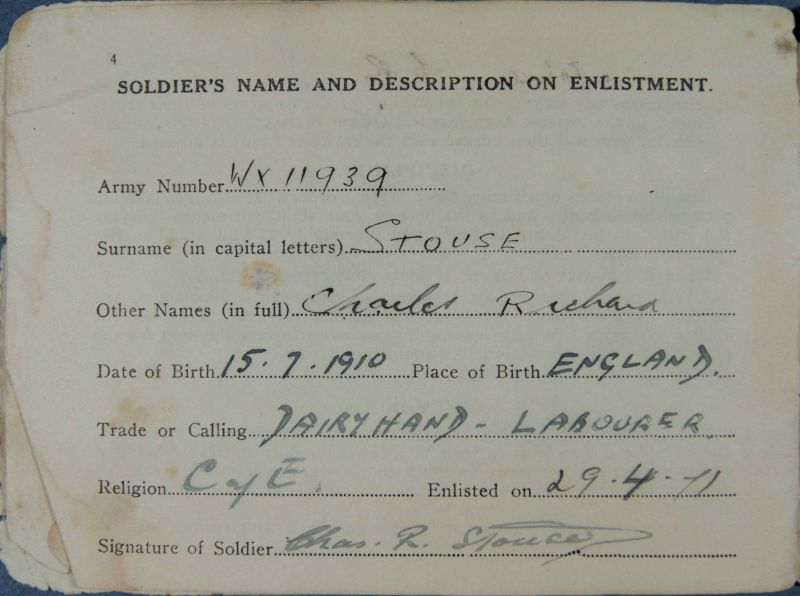 4
SOLDIER'S NAME AND DESCRIPTION ON ENLISTMENT.
Army Number WX 11939
Surname (in capital letters) STOUSE
Other Names (in full) Charles Richard
Date of Birth 15.7.1910 Place of Birth ENGLAND.
Trade or Calling DAIRYHAND - LABOURER
Religion C of E. Enlisted on 29.4.
Signature of Soldier Chas. R. Stouse